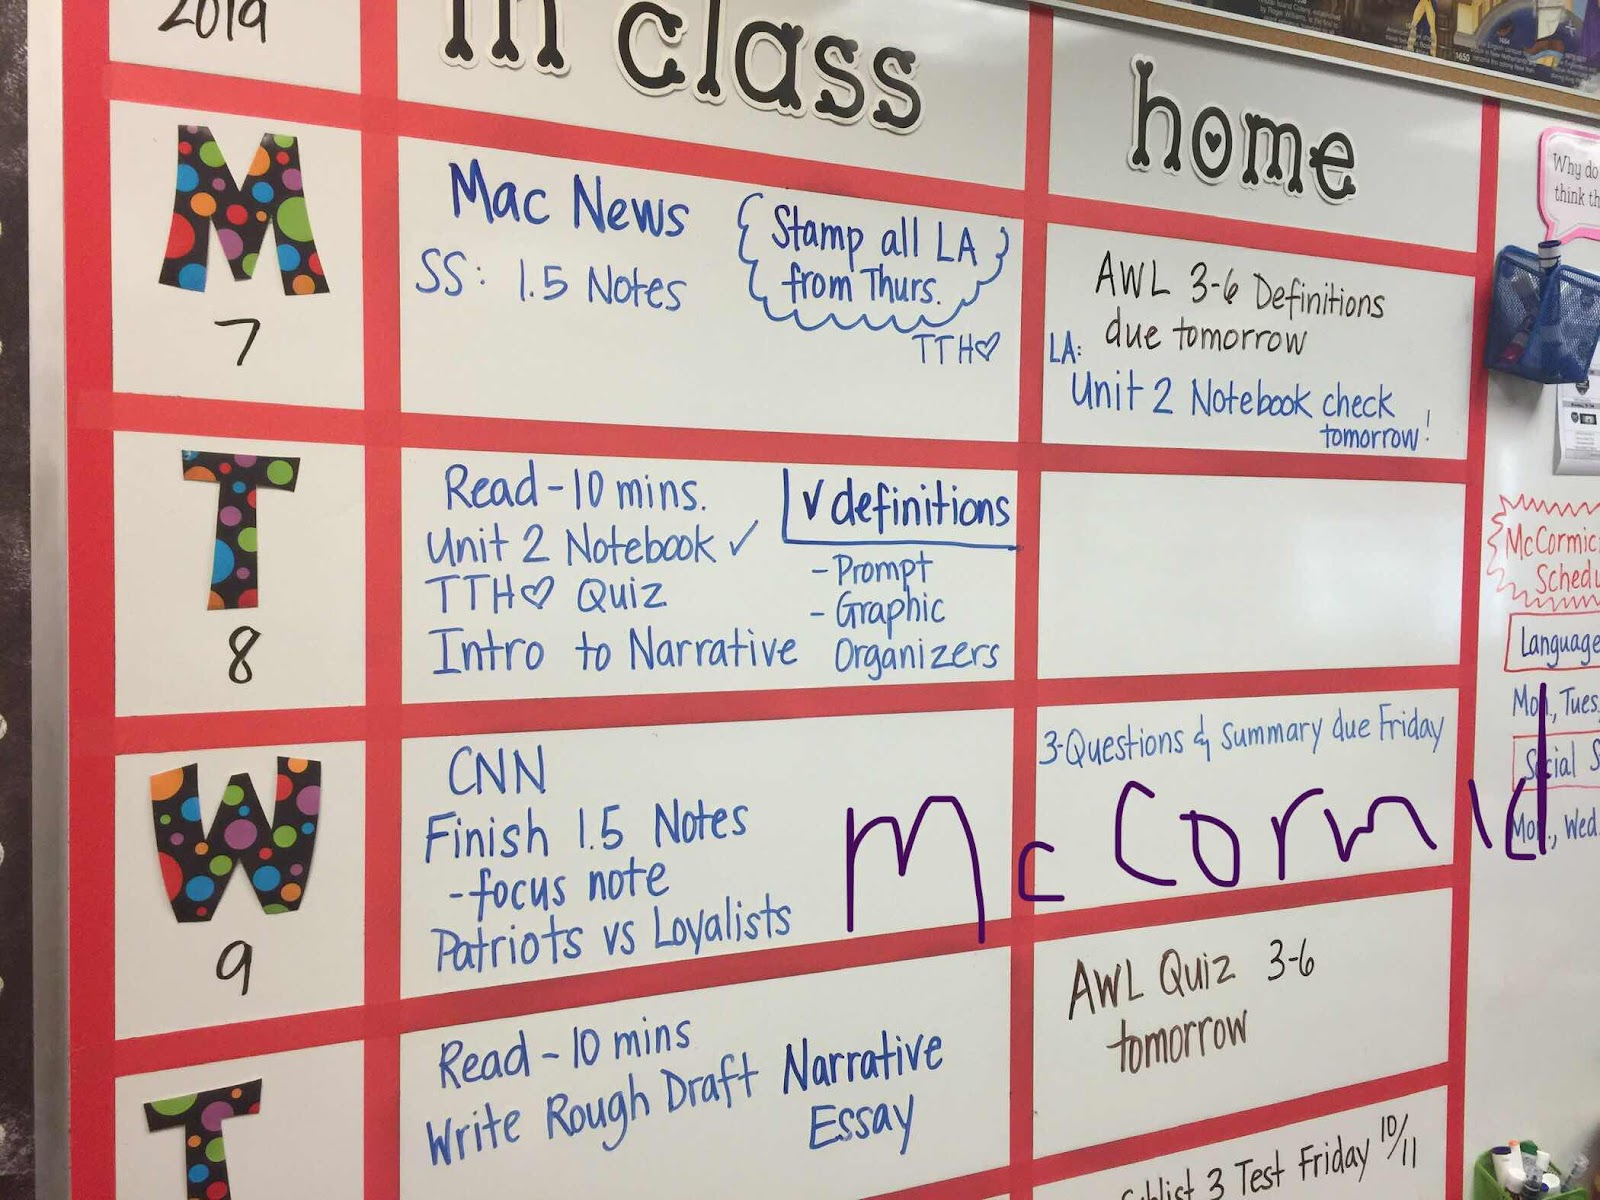 2019
in class
home
M
7
Mac News
SS: 1.5 Notes
Stamp all LA
from Thurs.
TTH♡
AWL 3-6 Definitions
due tomorrow
LA:
Unit 2 Notebook check
tomorrow!
T
8
Read - 10 mins.
Unit 2 Notebook ✓
TTH♡ Quiz
Intro to Narrative
✓ definitions
- Prompt
- Graphic
Organizers
W
9
CNN
Finish 1.5 Notes
- focus note
Patriots vs Loyalists
3-Questions & Summary due Friday
McCormid
T
Read - 10 mins
Write Rough Draft Narrative
Essay
AWL Quiz 3-6
tomorrow
3 Test Friday 10/11
Why do
think
McCormic
Schedu
Language
Mon., Tues.
Social S
Mon., Wed.
1664
1650